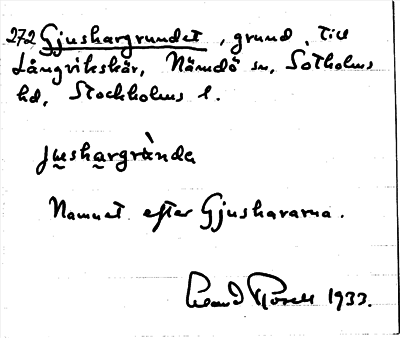 272 Gjushargrundet, grund, till
Långvikskär, Nämdö sn, Sotholms
hd, Stockholms l.
jushargrùnda
Namnet efter Gjushararna.
1933.